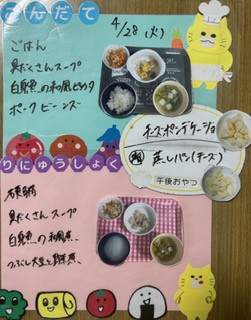 こんだて
4/28(火)
ごはん
具だくさんスープ
白身魚の和風ピカタ
ポークビーンズ
チーズポンデケージョ
蒸しパン(チーズ)
午後おやつ
りにゅうしょく
具だくさんスープ
白身魚の和風煮
つぶし大豆と野菜煮